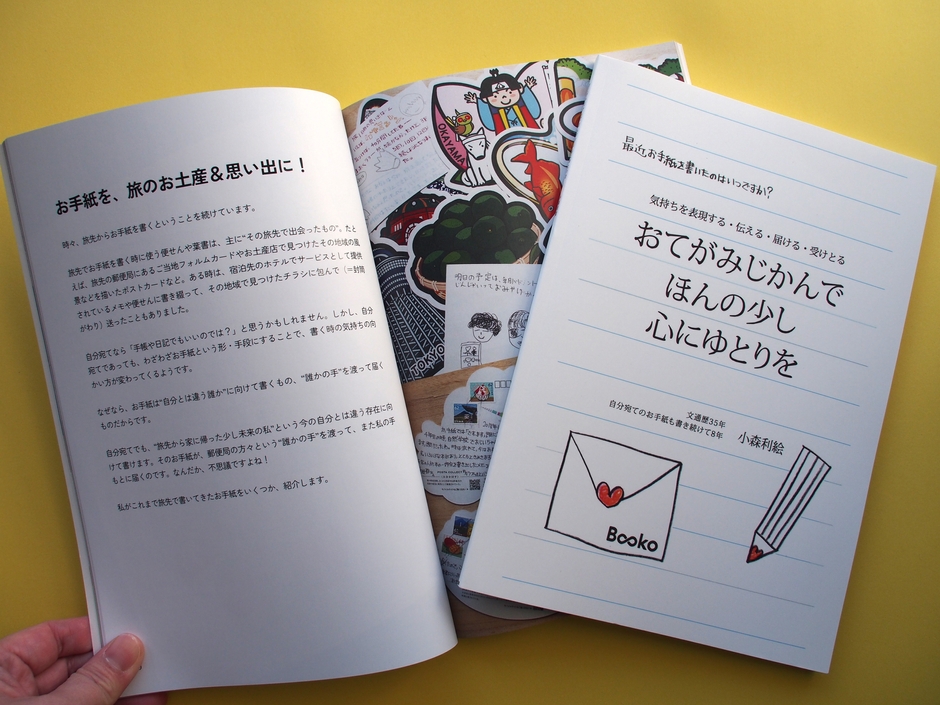 お手紙を、旅のお土産＆思い出に！
時々、旅先からお手紙を書くということを続けています。
旅先でお手紙を書く時に使う便せんや葉書は、主に“その旅先で出会ったもの”。たと
えば、旅先の郵便局にあるご当地フォルムカードやお土産店で見つけたその地域の風
景などを描いたポストカードなど。ある時は、宿泊先のホテルでサービスとして提供
されているメモや便せんに書き綴って、その地域で見つけたチラシに包んで（＝封筒
がわり）送ったこともありました。
自分宛てなら「手帳や日記でもいいのでは？」と思うかもしれません。しかし、自分
宛てであっても、わざわざお手紙という形・手段にすることで、書く時の気持ちの向
かい方が変わってくるようです。
なぜなら、お手紙は“自分とは違う誰か”に向けて書くもの、“誰かの手”を渡って届く
ものだからです。
自分宛てでも、“旅先から家に帰った少し未来の私”という今の自分とは違う存在に向
けて書けます。そのお手紙が、郵便局の方々という“誰かの手”を渡って、また私の手
もとに届くのです。なんだか、不思議ですよね！
私がこれまで旅先で書いてきたお手紙をいくつか、紹介します。
OKAYAMA
TOKYO
最近、お手紙を書いたのはいつですか？
気持ちを表現する・伝える・届ける・受けとる
おてがみじかんで
ほんの少し
心にゆとりを
文通歴35年
自分宛てのお手紙も書き続けて8年
小森利絵
Booko